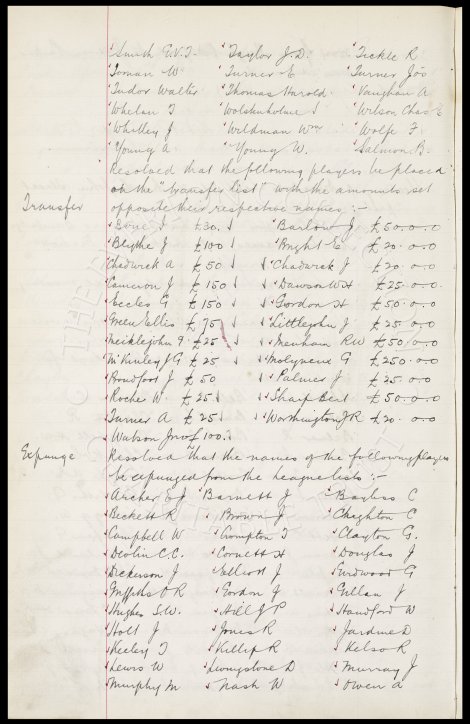 Smith E.V.T. Taylor J.D. Teckle R
Toman W. Turner E Turner Jos
Tudor Walter Thomas Harold Vaughan A
Whelan T Wolstenholme S Wilson Chas E
Whitley J Wildman Wm Wolfe F.
Young A Young W. Salmon B.
Resolved that the following players be placed
on the "transfer list" with the amounts set
Transfer opposite their respective names:-
£30 Barlow J £50.0.0
Blythe J £100 Bright E £20.0.0
Chadwick A £50 Chadwick J £20.0.0
Cameron J £150 Dawson W H £25.0.0
Eccles G £150 Gordon H £50.0.0
Green Ellis £75 Littlejohn J £25.0.0
Meiklejohn G £25 Menham R W £50.0.0
McKinlay J G £25 Molyneux G £250.0.0
Proudfoot J £50 Palmer J £25.0.0
Roche W £25 Sharp Bert £50.0.0
Turner A £25 Wormington J R £20.0.0
Watson £100
Expunge Resolved that the names of the following players
be expunged from the League lists:-
Archer E J Barnett J Bayliss C
Beckett R Brown J Chaghton C
Campbell W Crompton T Clayton G.
Devlin C.C. Cornett H Douglas J
Dickerson J Elliott J Furdwood G
Griffiths O R Gordon J Gillan J
Hughes S.W. Hill J P Handford W
Holt J Jones R Jardine D
Keeley T Killip R Kelso R
Lewis W Livingstone D Murray J
Murphy M Nash W Owen A